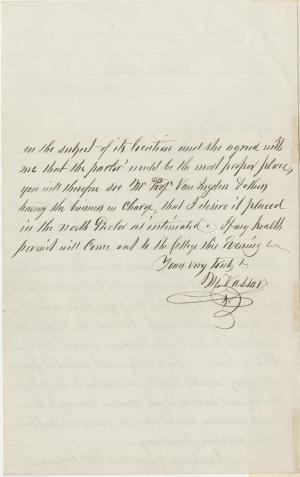 on the subject of its location and she agreed with
me that the parlor would be the most proper place,
you will therefore see Mr Prof. Van Ingen & others
having the business in Charge, that I desire it placed
in the north Parlor as intimated. If my health
permit will Come out to the College this Evening
Yours very truly
M. Vassar